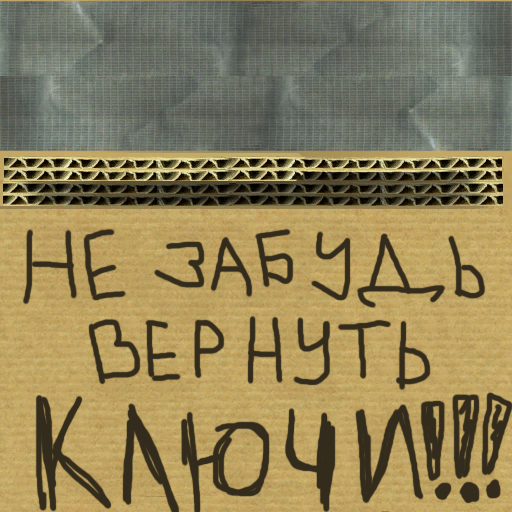 НЕ ЗАБУДЬ
ВЕРНУТЬ
КЛЮЧИ!!!